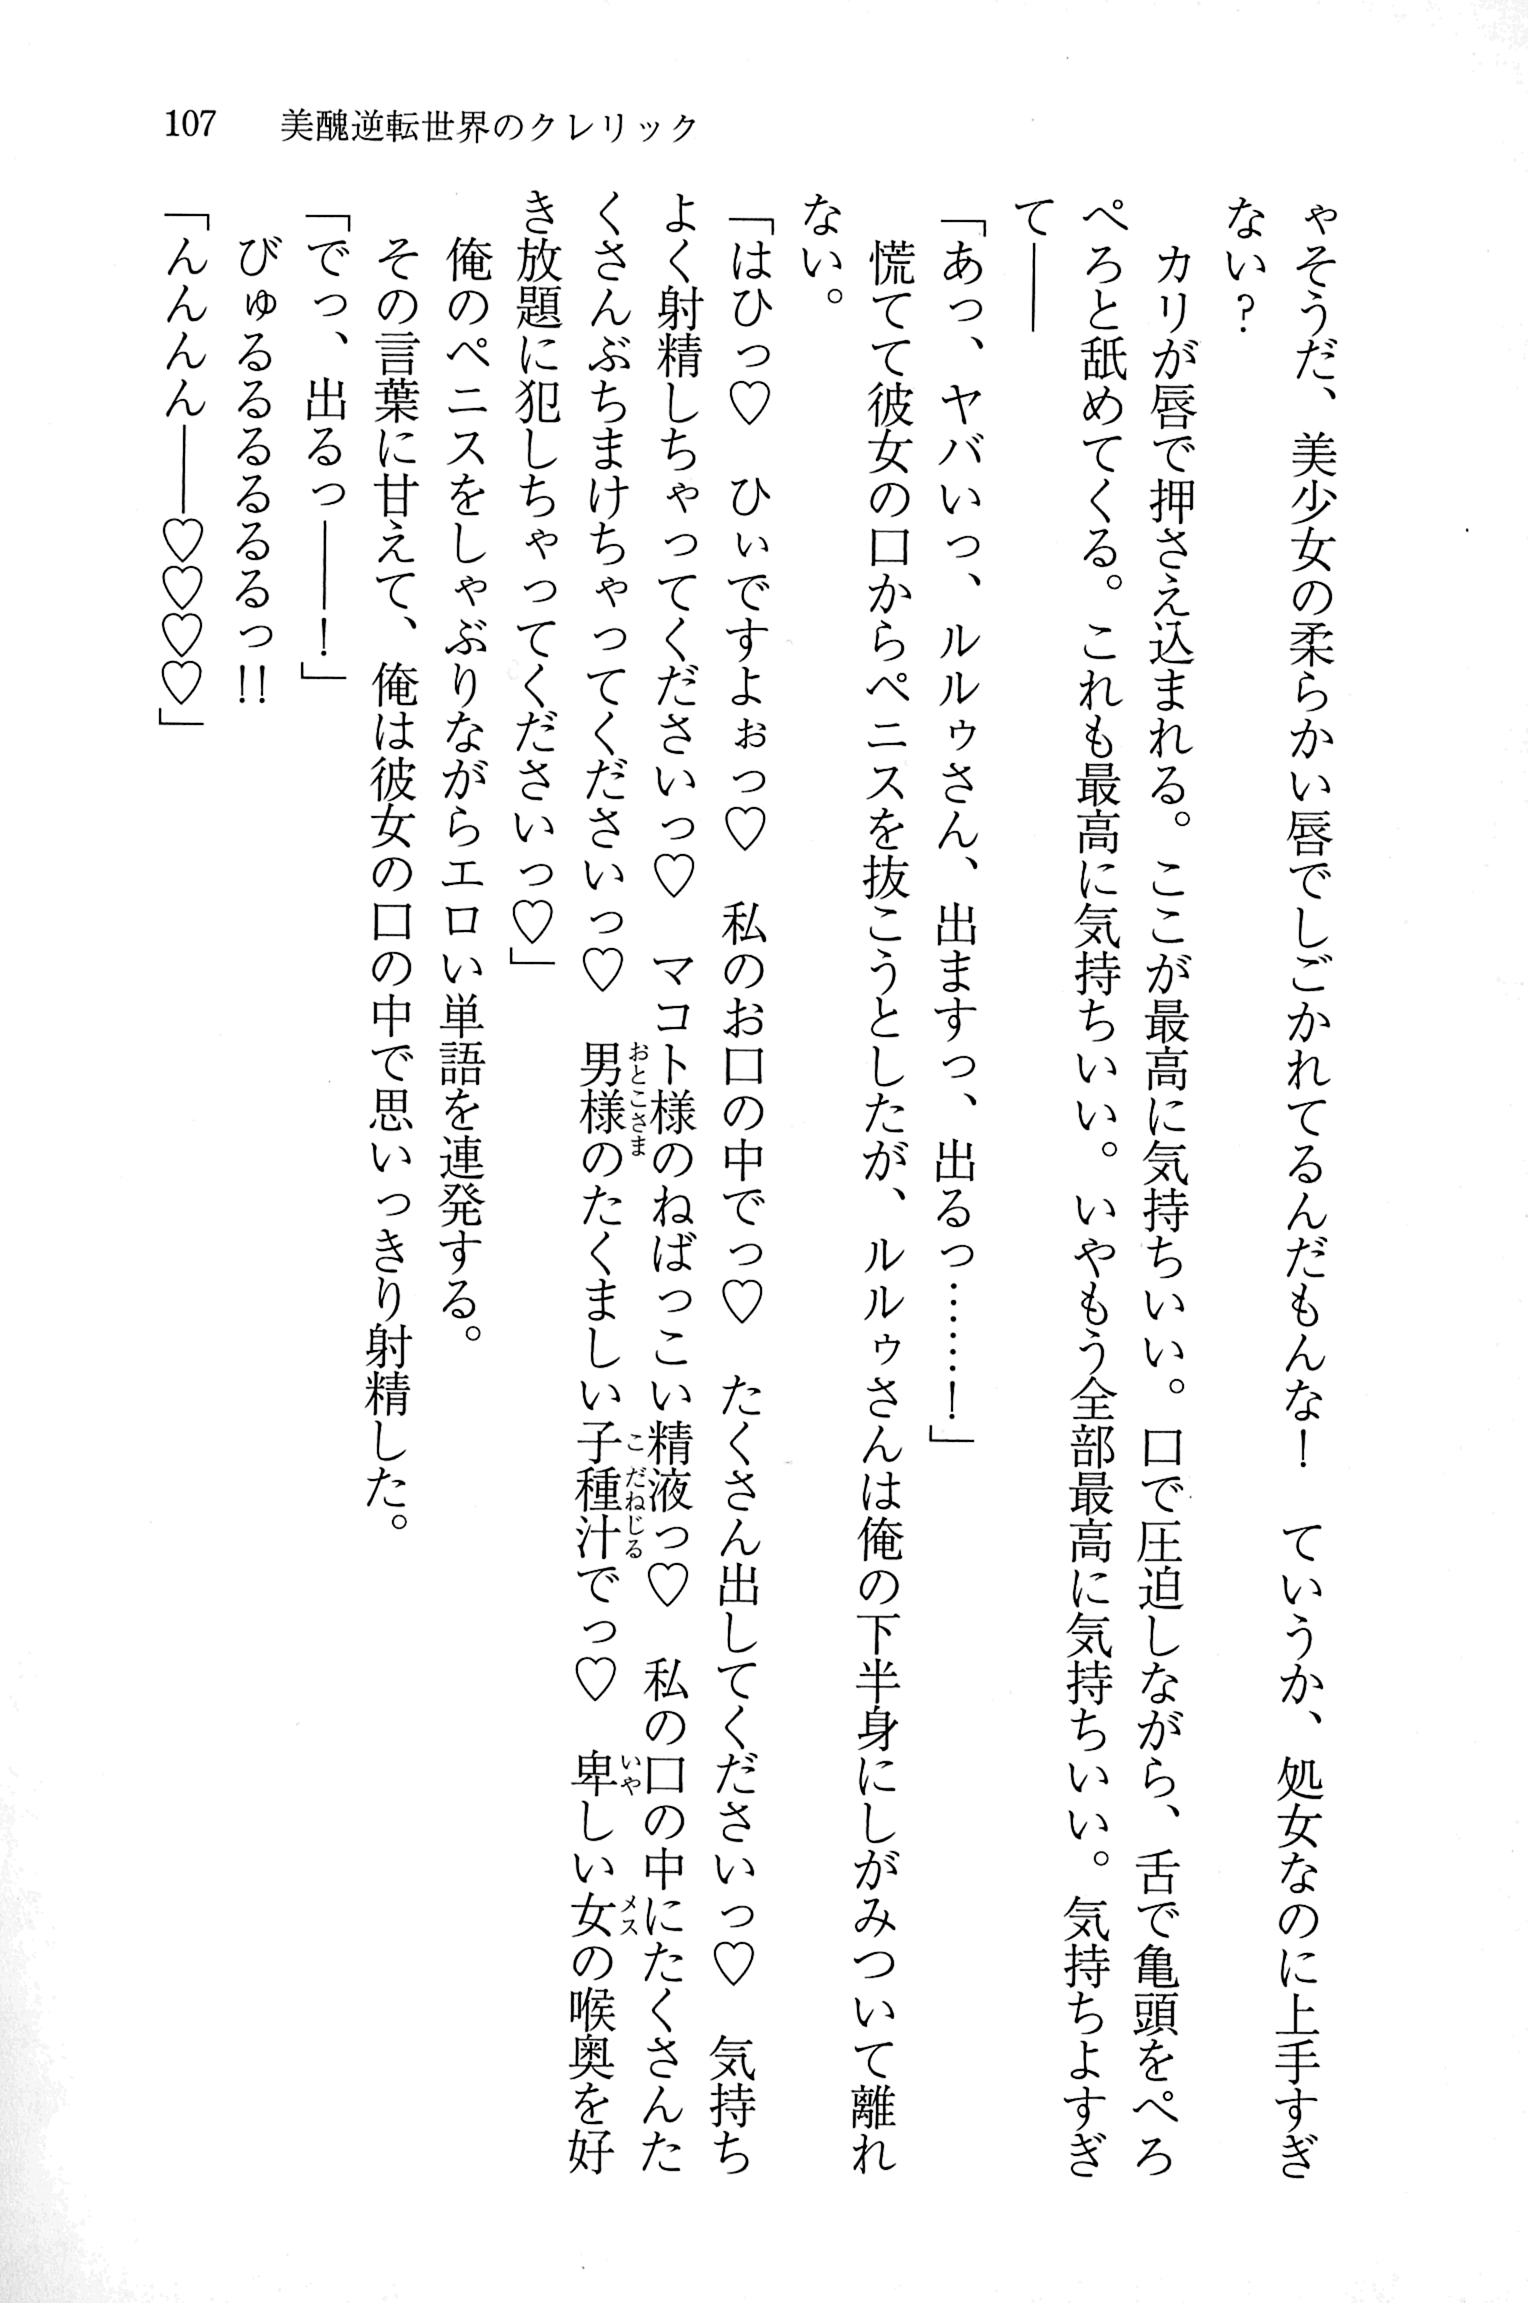 107 美醜逆転世界のクレリック
ゃそうだ、美少女の柔らかい唇でしごかれてるんだもんな！　ていうか、処女なのに上手すぎ
ない？
　カリが唇で押さえ込まれる。ここが最高に気持ちいい。口で圧迫しながら、舌で亀頭をぺろ
ぺろと舐めてくる。これも最高に気持ちいい。いやもう全部最高に気持ちいい。気持ちよすぎ
て――
「あっ、ヤバいっ、ルルゥさん、出ますっ、出るっ……！」
　慌てて彼女の口からペニスを抜こうとしたが、ルルゥさんは俺の下半身にしがみついて離れ
ない。
「はひっ♡　ひぃですよぉっ♡　私のお口の中でっ♡　たくさん出してくださいっ♡　気持ち
よく射精しちゃってくださいっ♡　マコト様のねばっこい精液っ♡　私の口の中にたくさんた
くさんぶちまけちゃってくださいっ♡　男様のたくましい子種汁でっ♡　卑しい女の喉奥を好
き放題に犯しちゃってくださいっ♡」
　俺のペニスをしゃぶりながらエロい単語を連発する。
　その言葉に甘えて、俺は彼女の口の中で思いっきり射精した。
「でっ、出るっ――！」
　びゅるるるるるるっ!!
「んんんん――♡♡♡♡」